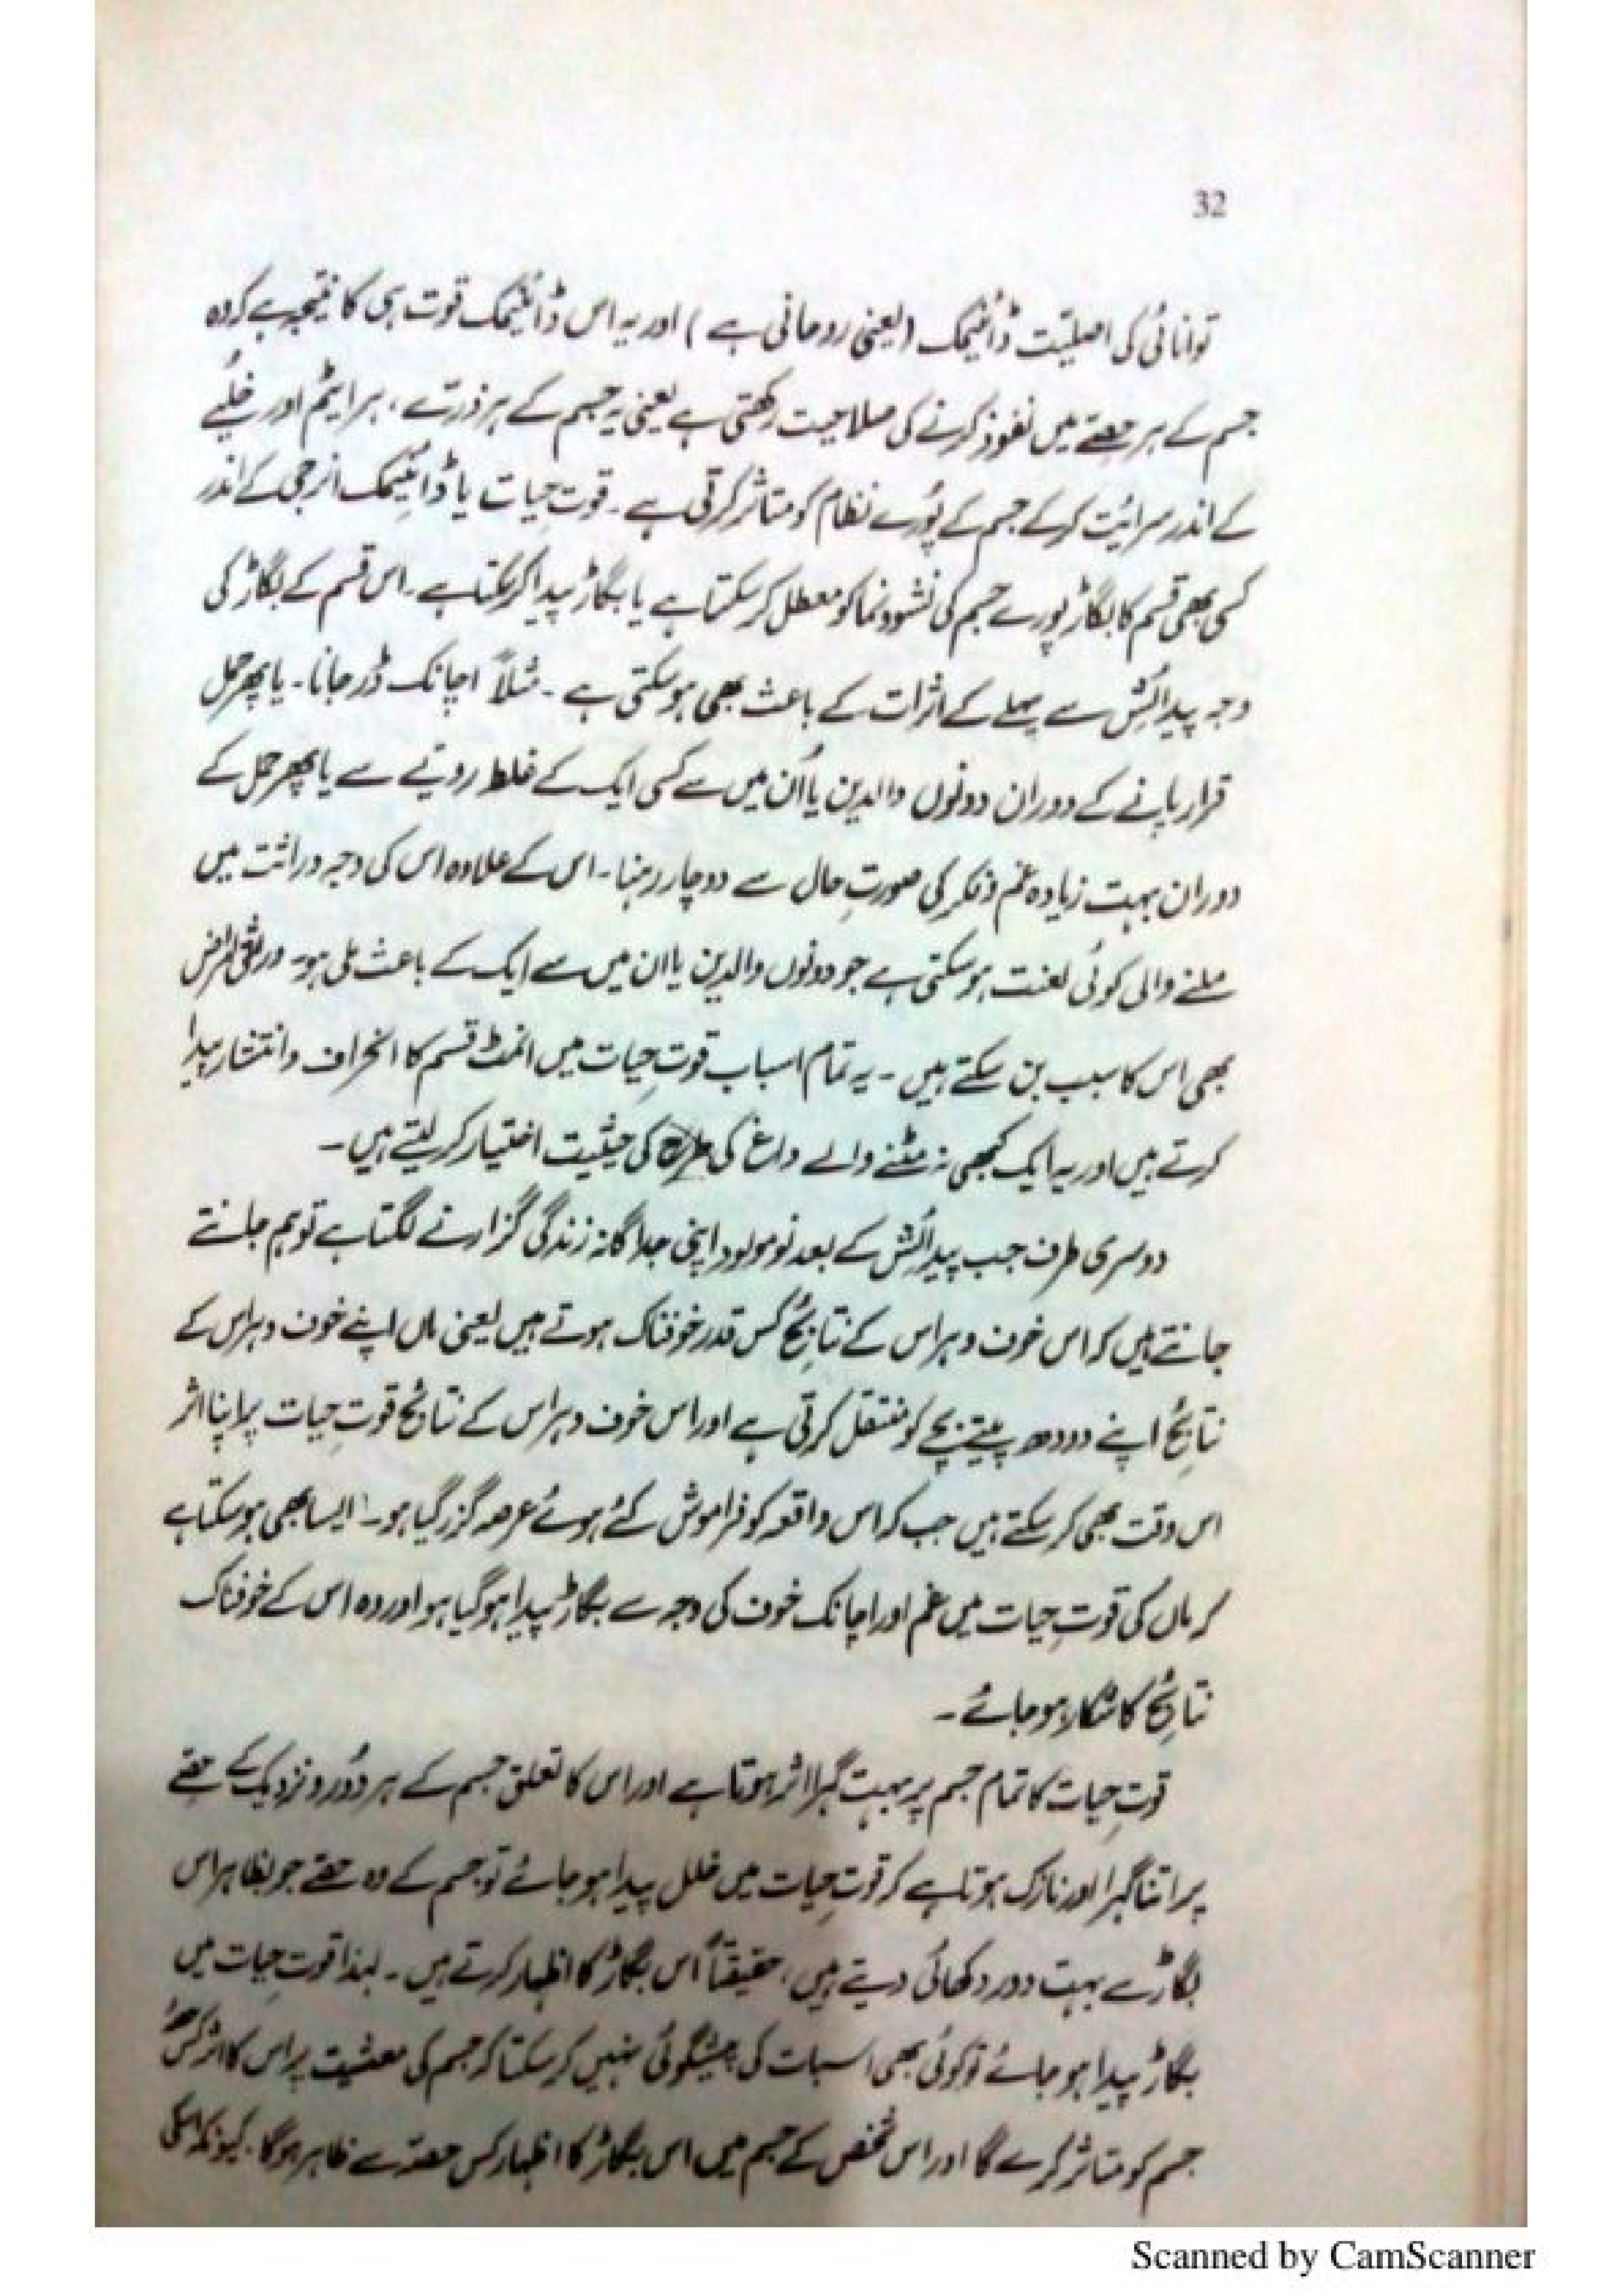 32
توانائی کی اصلیت ڈائنیمک (یعنی روحانی ہے) اور یہ اس ڈائنیمک قوت ہی کا نتیجہ ہے کہ وہ
جسم کے ہر حصّے میں نفوذ کرنے کی صلاحیت رکھتی ہے یعنی یہ جسم کے ہر ذرّے، ہر ایٹم اور خلیے
کے اندر سرایت کر کے جسم کے پُورے نظام کو متاثر کرتی ہے۔ قوتِ حیات یا ڈائنیمک انرجی کے اندر
کسی بھی قسم کا بگاڑ پورے جسم کی نشوونما کو معطل کر سکتا ہے یا بگاڑ پیدا کر سکتا ہے۔ اس قسم کے بگاڑ کی
وجہ پیدائش سے پہلے کے اثرات کے باعث بھی ہو سکتی ہے۔ مثلاً اچانک ڈر جانا۔ یا پھر حمل
قرار پانے کے دوران دونوں والدین یا اُن میں سے کسی ایک کے غلط رویّے سے یا پھر حمل کے
دوران بہت زیادہ غم و فکر کی صورتِ حال سے دوچار رہنا۔ اس کے علاوہ اس کی وجہ وراثت میں
ملنے والی کوئی لعنت ہو سکتی ہے جو دونوں والدین یا ان میں سے ایک کے باعث ملی ہو۔ ورثتی امراض
بھی اس کا سبب بن سکتے ہیں۔ یہ تمام اسباب قوتِ حیات میں انمٹ قسم کا انحراف و انتشار پیدا
کرتے ہیں اور یہ ایک کبھی نہ مٹنے والے داغ کی طرح کی حیثیت اختیار کر لیتے ہیں۔
دوسری طرف جب پیدائش کے بعد نومولود اپنی جداگانہ زندگی گزارنے لگتا ہے تو ہم جانتے
جانتے ہیں کہ اس خوف و ہراس کے نتائج کس قدر خوفناک ہوتے ہیں یعنی ماں اپنے خوف و ہراس کے
نتائج اپنے دودھ پیتے بچے کو منتقل کرتی ہے اور اس خوف و ہراس کے نتائج قوتِ حیات پر اپنا اثر
اس وقت بھی کر سکتے ہیں جب کہ اس واقعہ کو فراموش کئے ہوئے عرصہ گزر گیا ہو۔ ایسا بھی ہو سکتا ہے
کہ ماں کی قوتِ حیات میں غم اور اچانک خوف کی وجہ سے بگاڑ پیدا ہو گیا ہو اور وہ اس کے خوفناک
نتائج کا شکار ہو جائے۔
قوتِ حیات کا تمام جسم پر بہت گہرا اثر ہوتا ہے اور اس کا تعلق جسم کے ہر دُور و نزدیک کے حصّے
پر اتنا گہرا اور نازک ہوتا ہے کہ قوتِ حیات میں خلل پیدا ہو جائے تو جسم کے وہ حصے جو بظاہر اس
بگاڑ سے بہت دور دکھائی دیتے ہیں، حقیقتاً اُس بگاڑ کا اظہار کرتے ہیں۔ لہذا قوتِ حیات میں
بگاڑ پیدا ہو جائے تو کوئی بھی اسبات کی پیشگوئی نہیں کر سکتا کہ جسم کی معشیت پر اس کا اثر کس حصّہ
جسم کو متاثر کرے گا اور اس شخص کے جسم میں اس بگاڑ کا اظہار کس حصّہ سے ظاہر ہو گا۔ کیونکہ اسکی
Scanned by CamScanner